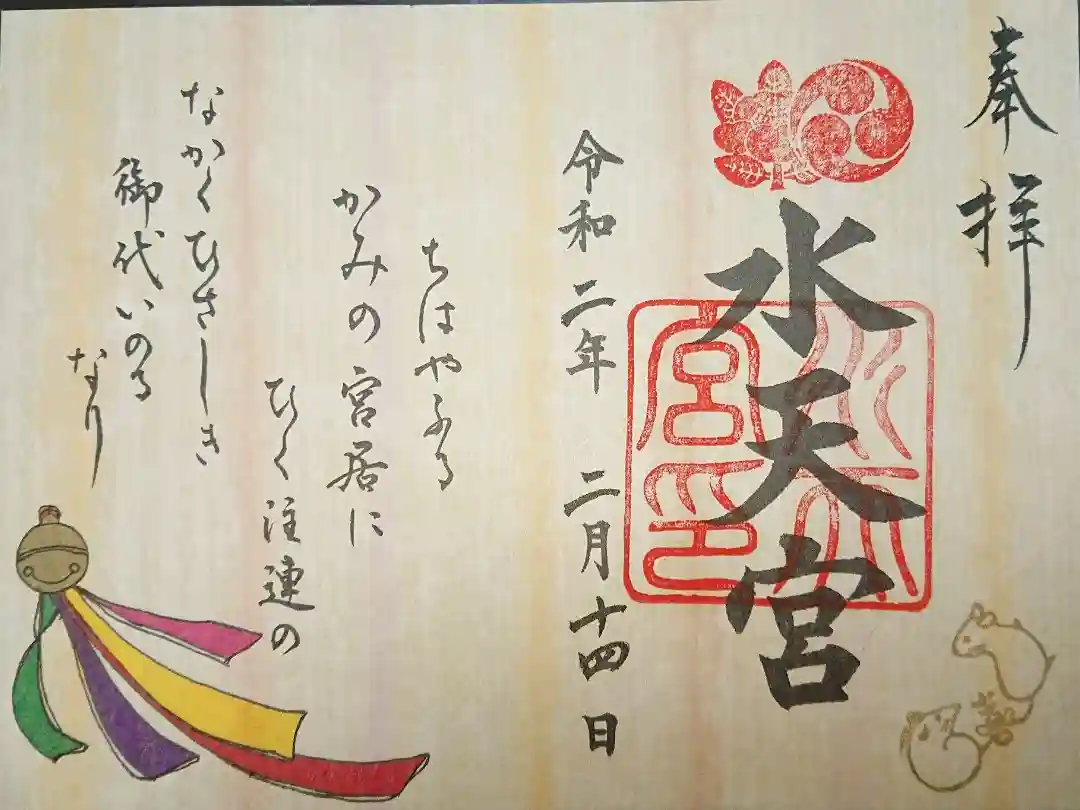 奉拝
水天宮
令和二年 二月十四日
ちはやふる
かみの宮居に
ひく注連の
なかくひさしき
御代いのる
なり